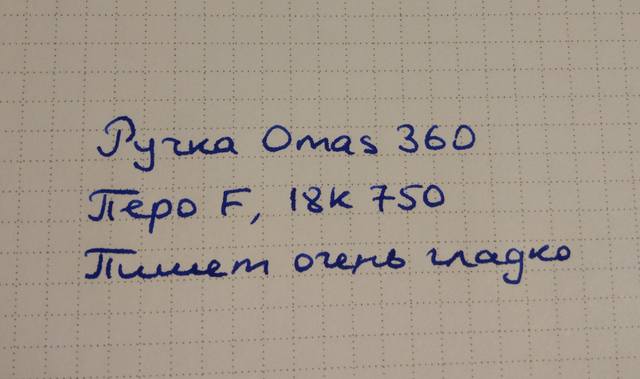 Ручка Omas 360
Перо F, 18K 750
Пишет очень гладко